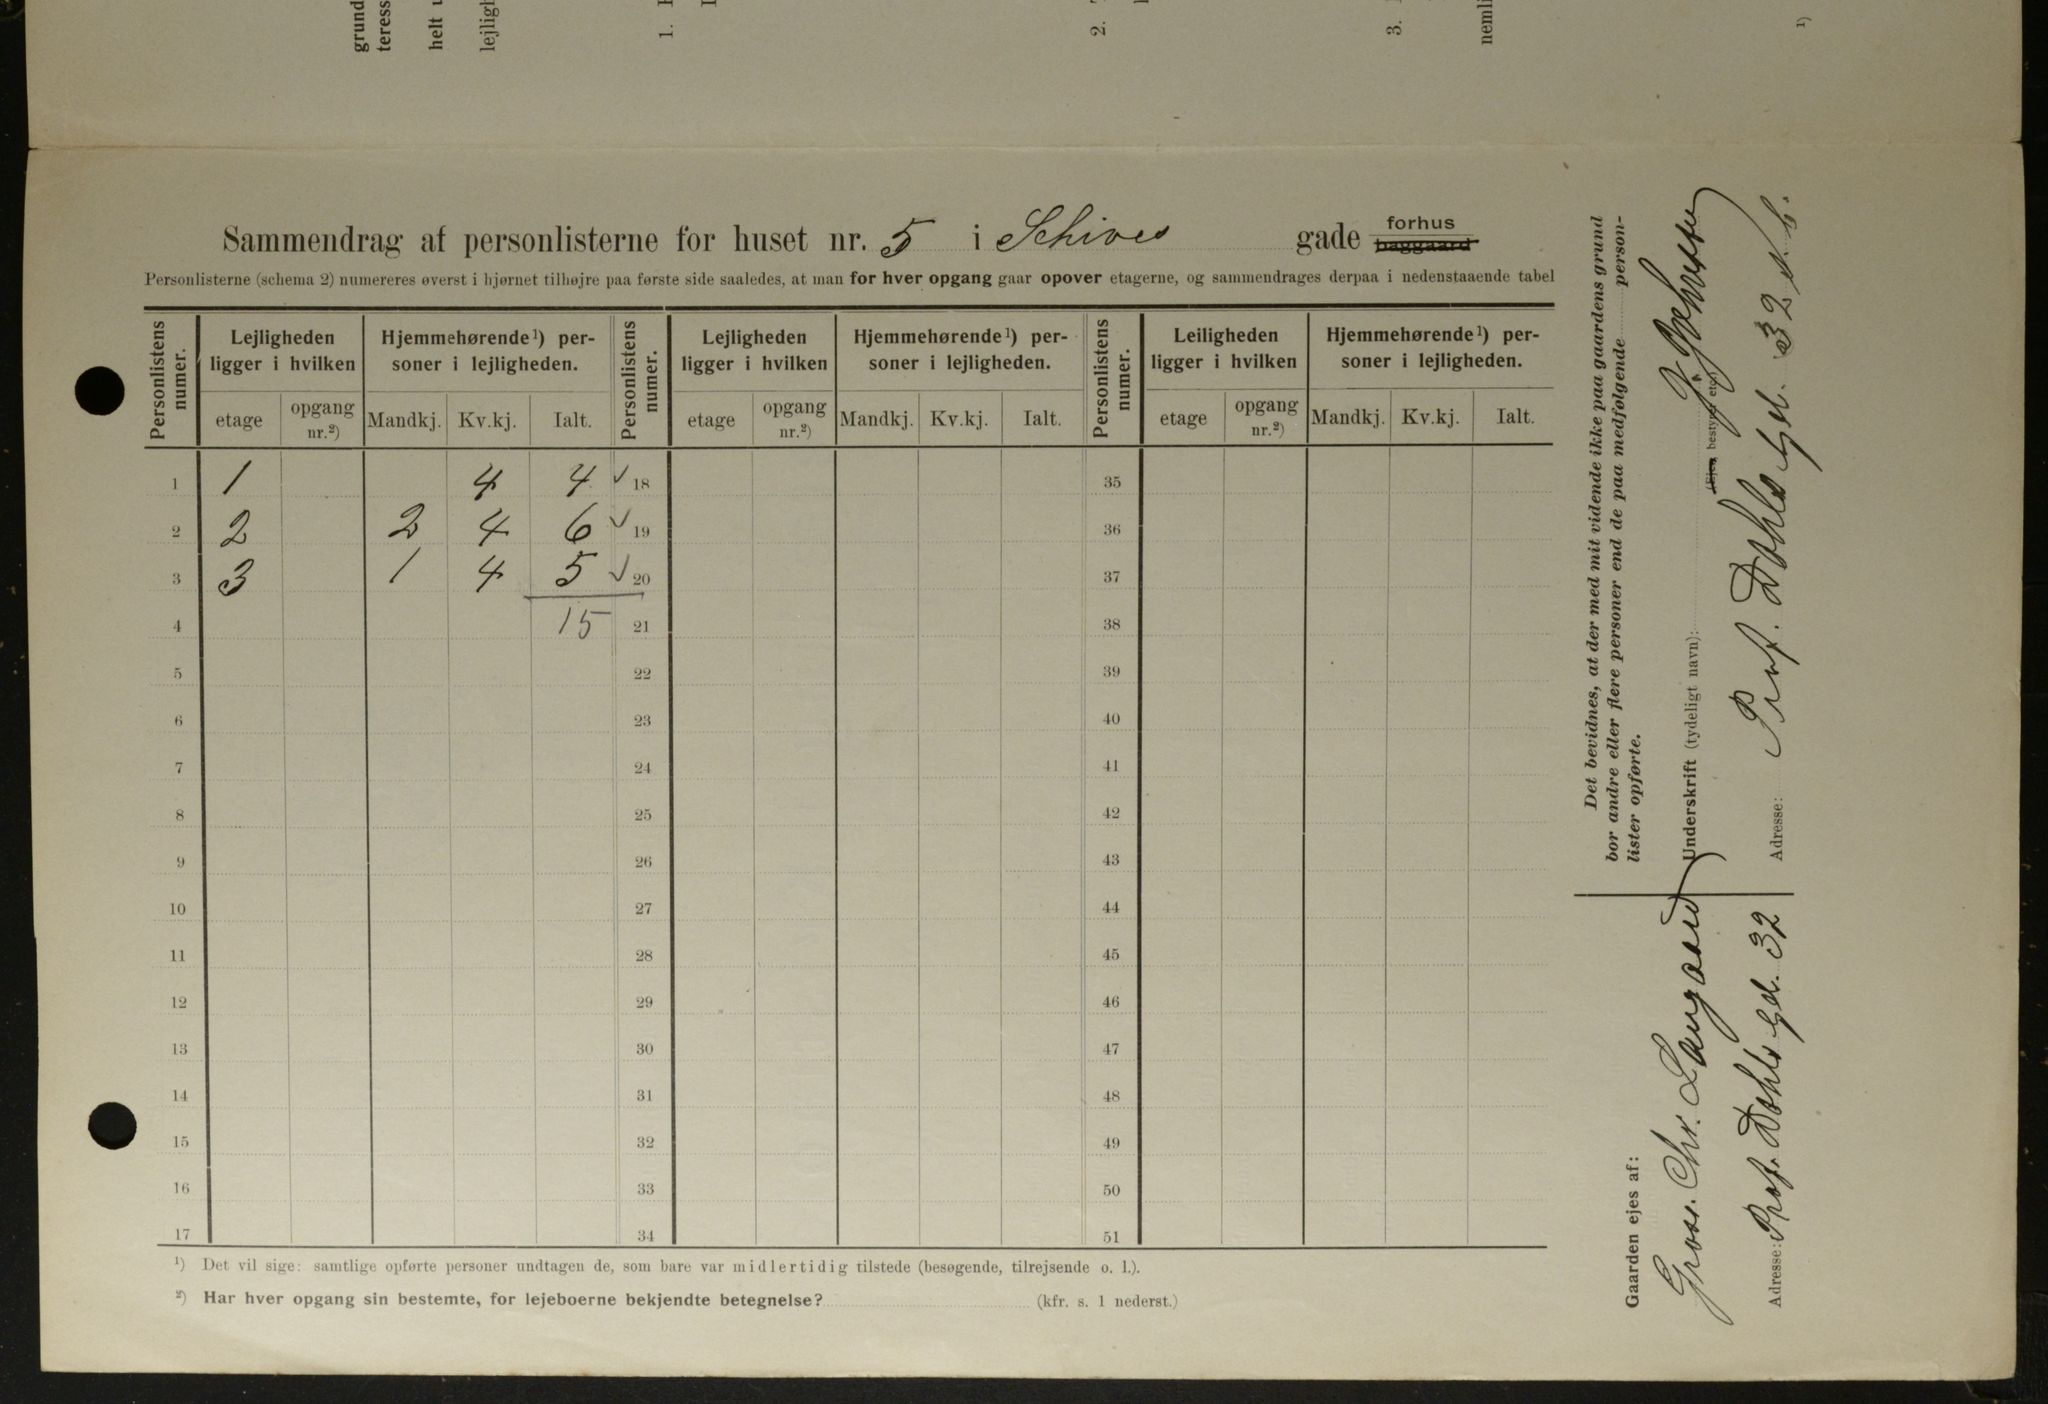 grund
teress
helt u
lejligh
1.
2.
3.
nemli
1)
Sammendrag af personlisterne for huset nr. 5 i Schives gade forhus baggaard
Personlisterne (schema 2) numereres øverst i hjørnet tilhøjre paa første side saaledes, at man for hver opgang gaar opover etagerne, og sammendrages derpaa i nedenstaaende tabel
Personlistens numer. Lejligheden ligger i hvilken Hjemmehørende 1) personer i lejligheden. Personlistens numer. Lejligheden ligger i hvilken Hjemmehørende 1) personer i lejligheden. Personlistens numer. Leiligheden ligger i hvilken Hjemmehørende 1) personer i lejligheden.
etage opgang nr.2) Mandkj. Kv.kj. Ialt. etage opgang nr.2) Mandkj. Kv.kj. Ialt. etage opgang nr.2) Mandkj. Kv.kj. Ialt.
1 1 4 4 ✓ 18 35
2 2 2 4 6 ✓ 19 36
3 3 1 4 5 ✓ 20 37
4 15 21 38
5 22 39
6 23 40
7 24 41
8 25 42
9 26 43
10 27 44
11 28 45
12 29 46
13 30 47
14 31 48
15 32 49
16 33 50
17 34 51
1) Det vil sige: samtlige opførte personer undtagen de, som bare var midlertidig tilstede (besøgende, tilrejsende o. l.).
2) Har hver opgang sin bestemte, for lejeboerne bekjendte betegnelse? (kfr. s. 1 nederst.)
Det bevidnes, at der med mit vidende ikke paa gaardens grund
bor andre eller flere personer end de paa medfølgende personlister opførte.
Underskrift (tydeligt navn):
(Ejer, bestyrer etc.)
Adresse: Prof. Dahls Gd. 32
Gaarden ejes af:
Gross. Chr. Langaard
Adresse: Prof. Dahls Gd. 32